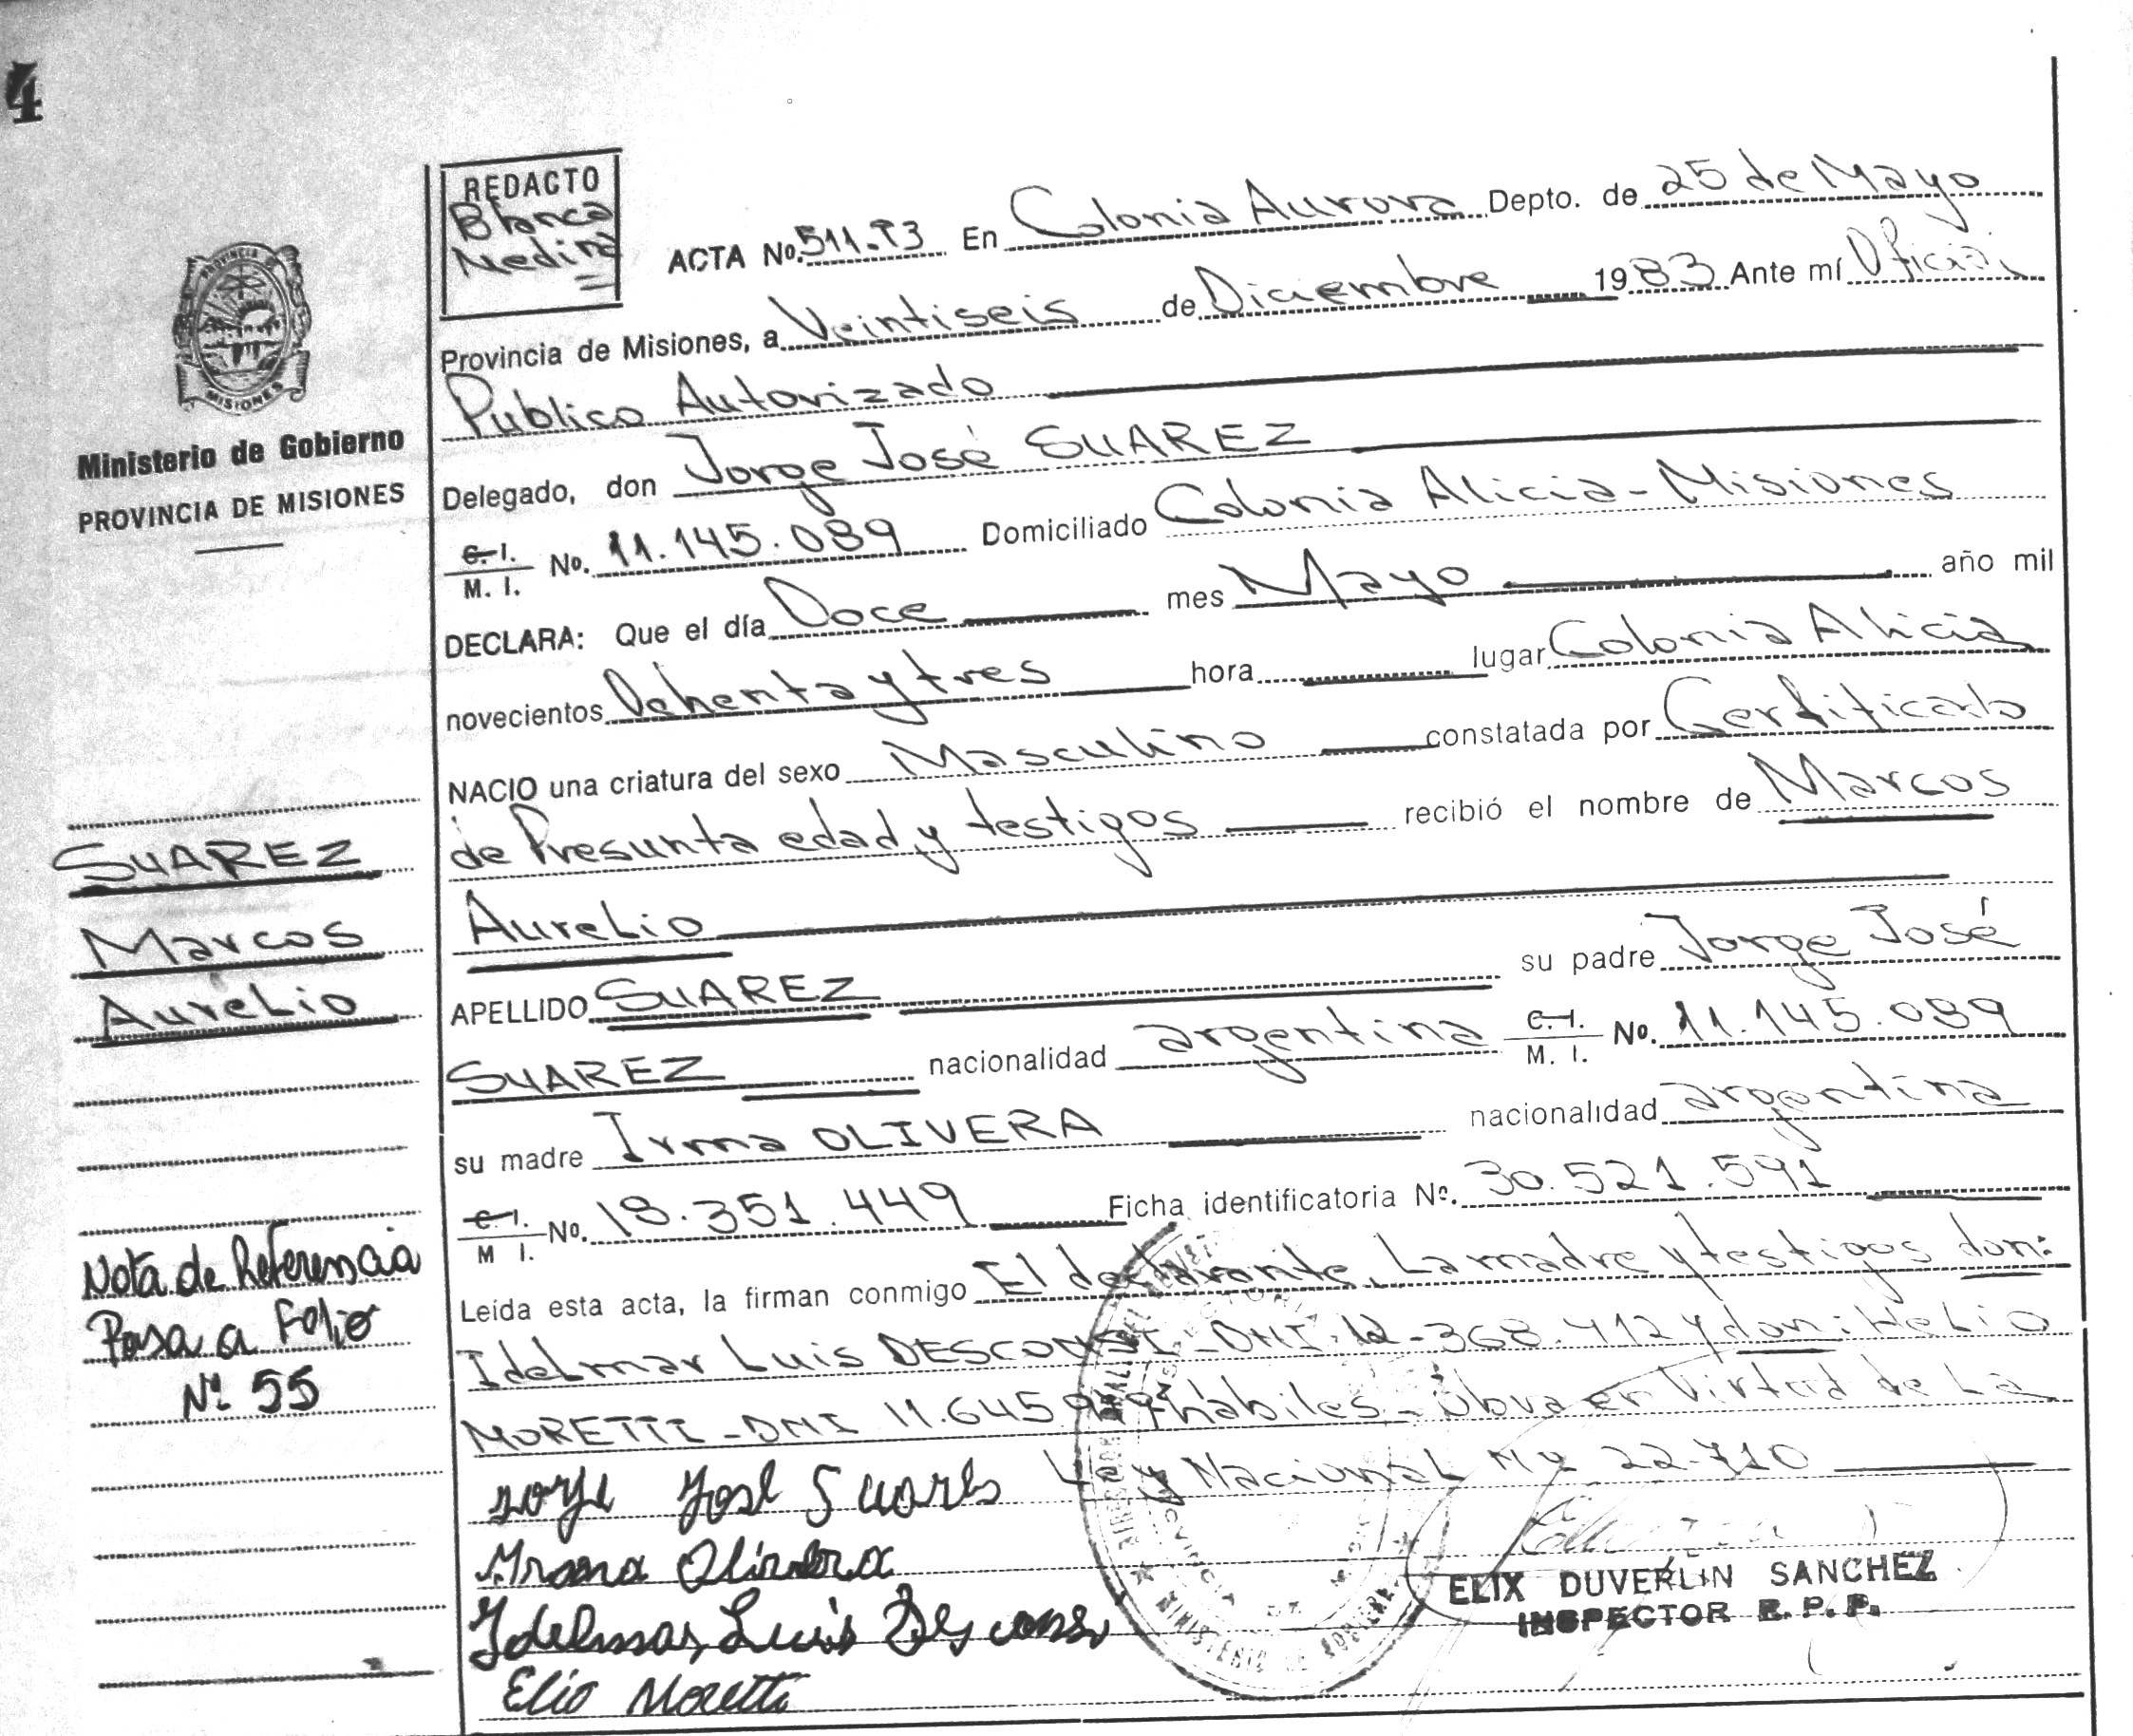 4
REDACTO
Blanca
Medina
ACTA No. 511-83 En Colonia Aurora Depto. de 25 de Mayo
Provincia de Misiones, a Veintiseis de Diciembre 1983 Ante mí Oficial
Publico Autorizado
Delegado, don Jorge José SUAREZ
C. I. / M. I. No. 11.145.089 Domiciliado Colonia Alicia - Misiones
DECLARA: Que el día Doce mes Mayo año mil
novecientos Ochenta y tres hora lugar Colonia Alicia
NACIO una criatura del sexo Masculino constatada por Certificado
de Presunta edad y testigos recibió el nombre de Marcos
Aurelio
APELLIDO SUAREZ su padre Jorge José
SUAREZ nacionalidad argentina C. I. / M. I. No. 11.145.089
su madre Irma OLIVERA nacionalidad argentina
C. I. / M I. No. 18.351.449 Ficha identificatoria Nº. 30.521.591
Leída esta acta, la firman conmigo El declarante, La madre y testigos don:
Idelmar Luis DESCONSI - DNI. 12-368.412 y don: Helio
MORETTI - DNI 11.645. hábiles - Obva en Virtud de La
Ley Nacional Nº 22-710
Jorge José Suares
Irma Olivera
Idelmar Luis Desconsi
Elio Moretti
ELIX DUVERLIN SANCHEZ
INSPECTOR R. P. P.
MINISTERIO DE GOBIERNO
PROVINCIA DE
MISIONES
Ministerio de Gobierno
PROVINCIA DE MISIONES
SUAREZ
Marcos
Aurelio
Nota de Referencia
Pasa a Folio
Nº 55